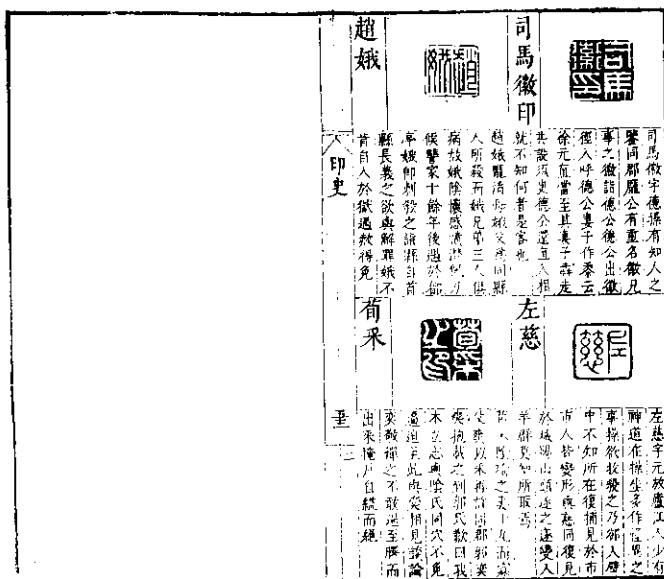 司馬徽印
司馬徽印
司馬徽字德操有知人之
鑒同郡龐公有重名徽兄
事之徽詣德公德公出徽
徑入呼德公妻子作黍云
徐元直當至其妻子奔走
共設須臾德公還直入相
就不知何者是客也
趙娥
趙娥龐淯母娥父為同縣
人所殺而娥兄弟三人俱
病故娥陰懷感憤潛備刀
候讐家十餘年後遇於都
亭娥即刺殺之詣縣自首
縣長義之欲與解罪娥不
肯自入於獄遇赦得免
左慈
左慈
左慈字元放廬江人少有
神道在操坐多作怪異之
事操欲收殺之乃卻入壁
中不知所在復捕見於市
市人皆變形與慈同復見
於城陽山頭逐之遂變入
羊群莫知所取焉
荀采之印
荀采
陰瑜之妻十九而寡
父爽以采再許同郡郭奕
奕抱載之到郭氏歎曰我
本立志與陰氏同穴不免
逼迫至此與奕相見談論
奕敬憚之不敢逼至曉而
出采掩戶自縊而絕
印史